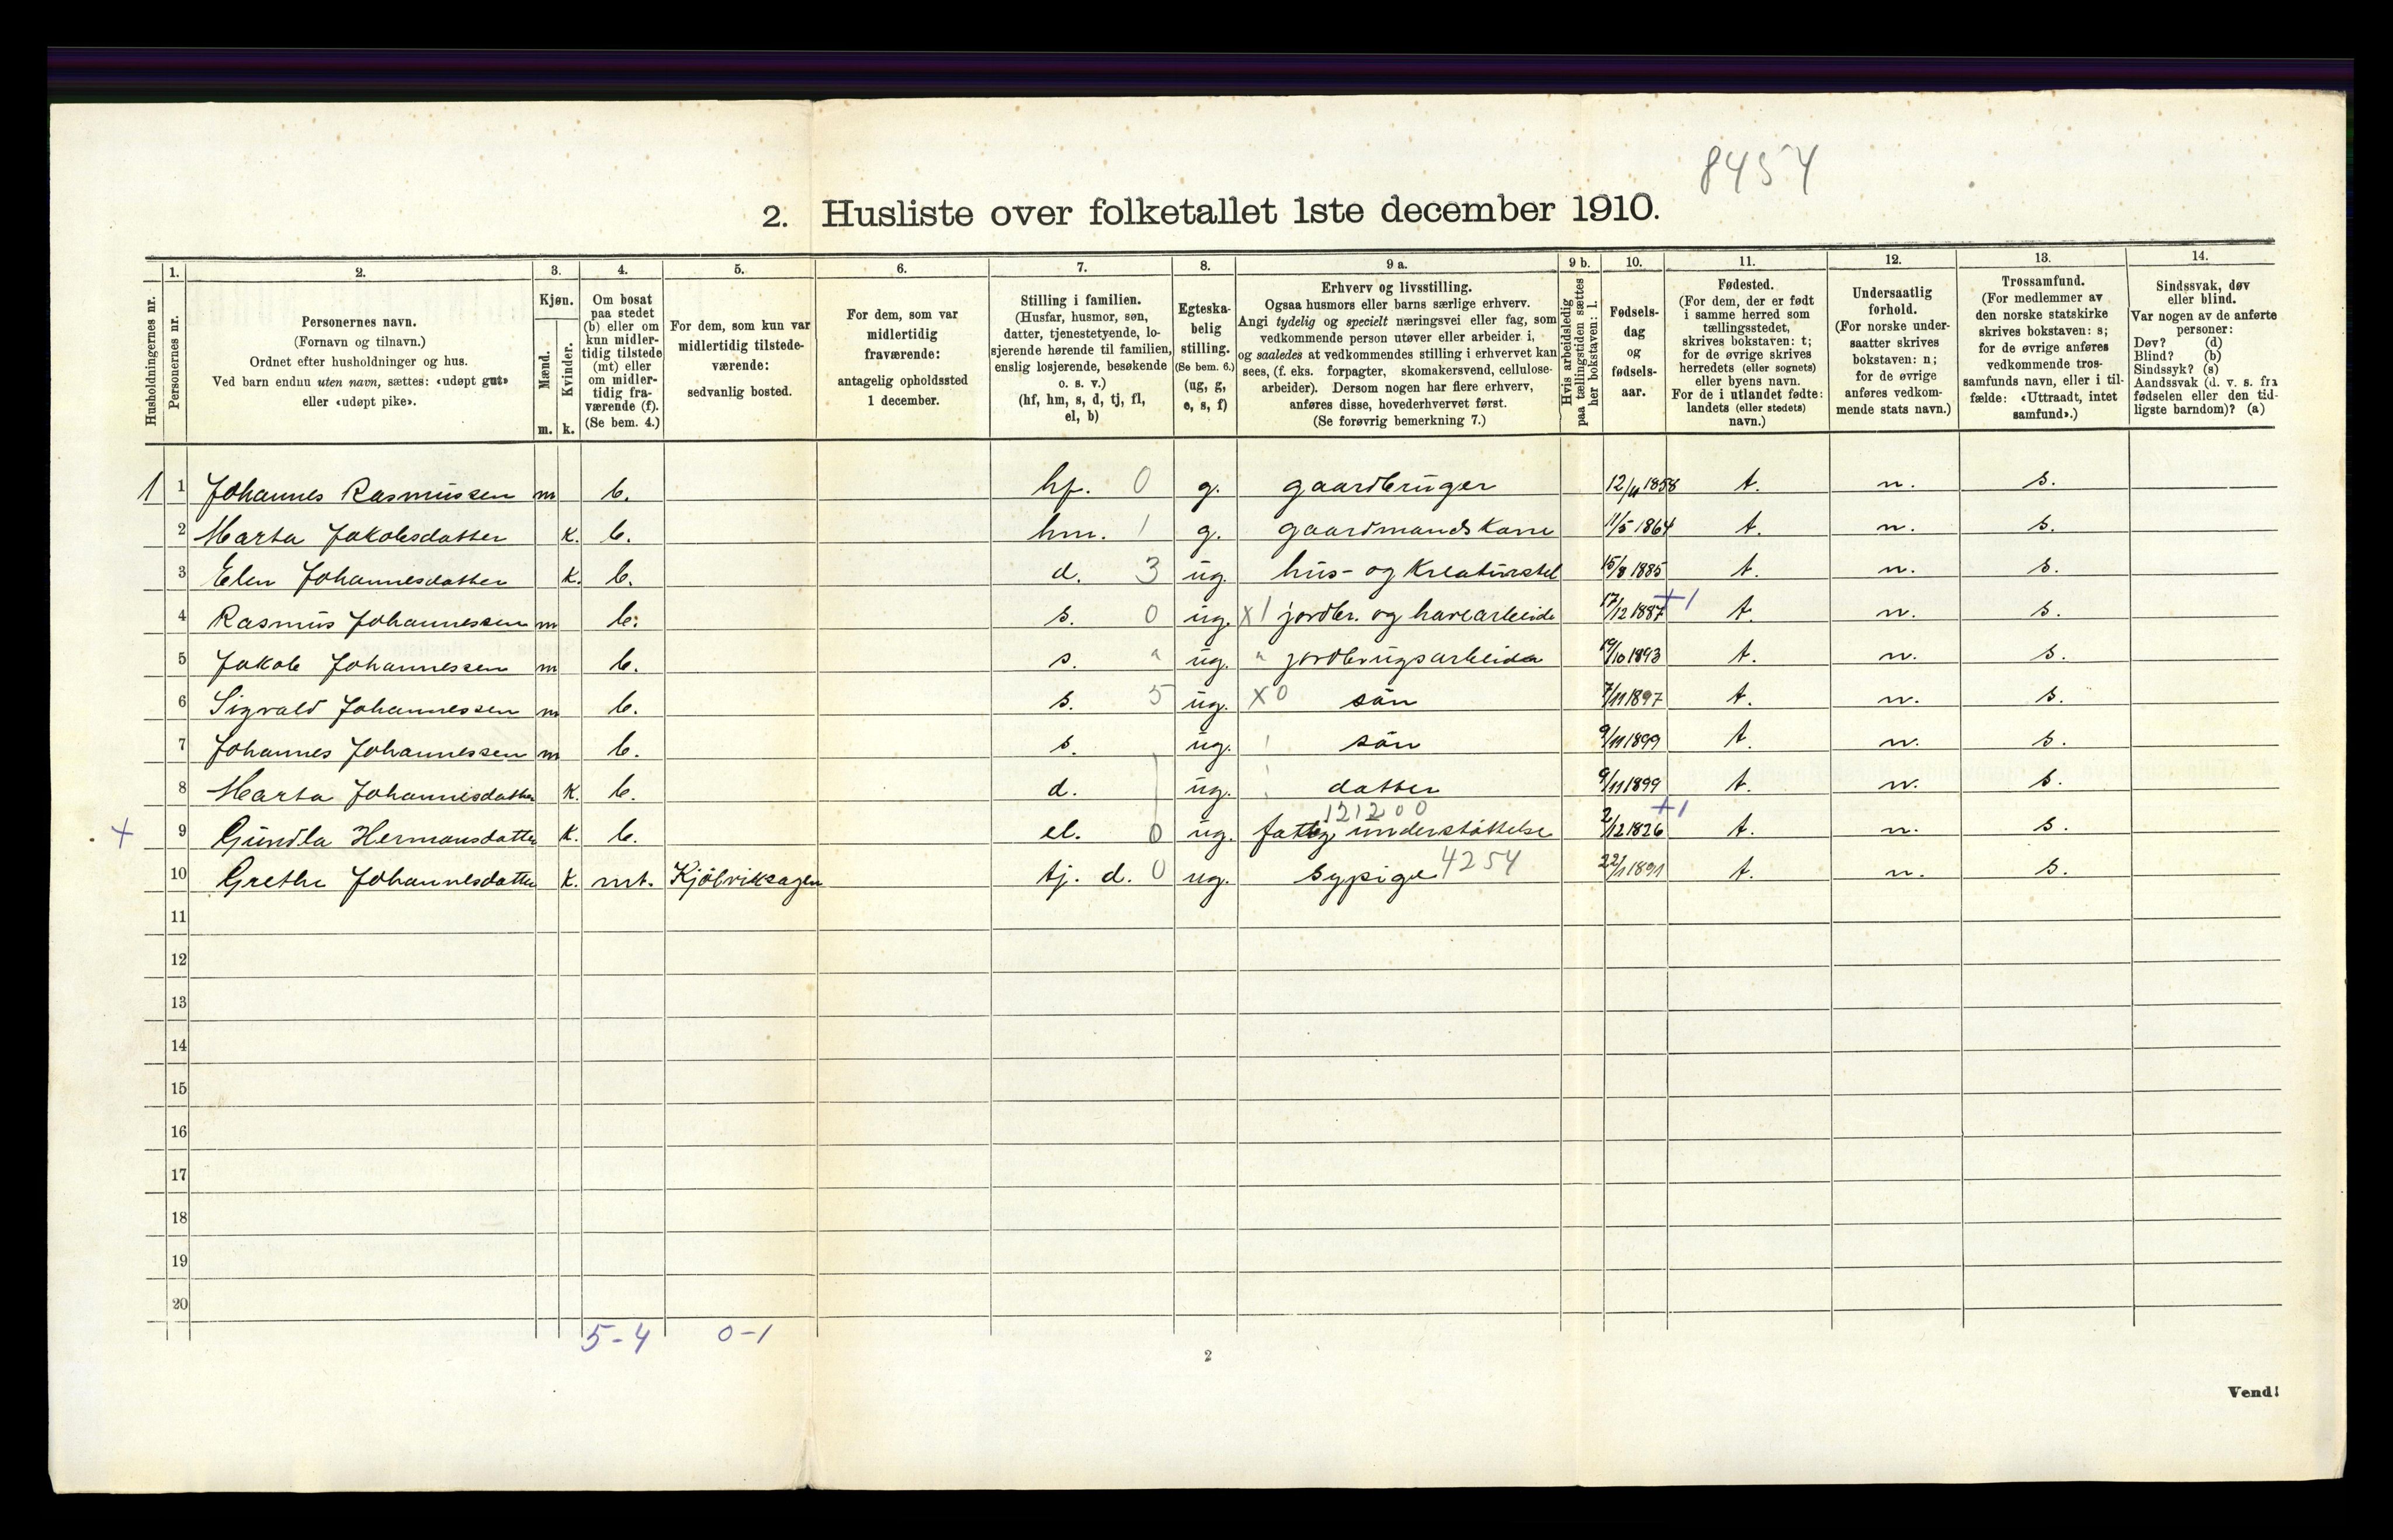 8454
2. Husliste over folketallet 1ste december 1910.
Husholdningernes nr.
1.
Personernes nr.
2.
Personernes navn.
(Fornavn og tilnavn.)
Ordnet efter husholdninger og hus.
Ved barn endnu uten navn, sættes: «udøpt gut»
eller «udøpt pike».
3.
Kjøn.
Mænd.
Kvinder.
m. k.
4.
Om bosat
paa stedet
(b) eller om
kun midler-
tidig tilstede
(mt) eller
om midler-
tidig fra-
værende (f).
(Se bem. 4.)
5.
For dem, som kun var
midlertidig tilstede-
værende:
sedvanlig bosted.
6.
For dem, som var
midlertidig
fraværende:
antagelig opholdssted
1 december.
7.
Stilling i familien.
(Husfar, husmor, søn,
datter, tjenestetyende, lo-
sjerende hørende til familien,
enslig losjerende, besøkende
o. s. v.)
(hf, hm, s, d, tj, fl,
el, b)
8.
Egteska-
belig
stilling.
(Se bem. 6.)
(ug, g,
e, s, f)
9 a.
Erhverv og livsstilling.
Ogsaa husmors eller barns særlige erhverv.
Angi tydelig og specielt næringsvei eller fag, som
vedkommende person utøver eller arbeider i,
og saaledes at vedkommendes stilling i erhvervet kan
sees, (f. eks. forpagter, skomakersvend, cellulose-
arbeider). Dersom nogen har flere erhverv,
anføres disse, hovederhvervet først.
(Se forøvrig bemerkning 7.)
9 b.
Hvis arbeidsledig
paa tællingstiden sættes
her bokstaven: l.
10.
Fødsels-
dag
og
fødsels-
aar.
11.
Fødested.
(For dem, der er født
i samme herred som
tællingsstedet,
skrives bokstaven: t;
for de øvrige skrives
herredets (eller sognets)
eller byens navn.
For de i utlandet fødte:
landets (eller stedets)
navn.)
12.
Undersaatlig
forhold.
(For norske under-
saatter skrives
bokstaven: n;
for de øvrige
anføres vedkom-
mende stats navn.)
13.
Trossamfund.
(For medlemmer av
den norske statskirke
skrives bokstaven: s;
for de øvrige anføres
vedkommende tros-
samfunds navn, eller i til-
fælde: «Uttraadt, intet
samfund».)
14.
Sindssvak, døv
eller blind.
Var nogen av de anførte
personer:
Døv? (d)
Blind? (b)
Sindssyk? (s)
Aandssvak (d. v. s. fra
fødselen eller den tid-
ligste barndom)? (a)
1 1 Johannes Rasmussen m b. hf. 0 g. gaardbruger 12/11 1858 t. n. s.
2 Marta Jakobsdatter k. b. hm. 1 g. gaardmandskone 11/5 1864 t. n. s.
3 Elen Johannesdatter k. b. d. 3 ug. hus- og kreaturstel 15/8 1885 t. n. s.
4 Rasmus Johannessen m b. s. 0 ug. x1 jordbr. og havearbeide 17/12 1887 +1 t. n. s.
5 Jakob Johannessen m b. s. " ug. " jordbrugsarbeider 19/10 1893 t. n. s.
6 Sigvald Johannessen m b. s. 5 ug. x0 sön 7/11 1897 t. n. s.
7 Johannes Johannessen m b. s. ug. sön 9/11 1899 t. n. s.
8 Marta Johannesdatter k. b. d. ug. datter 9/11 1899 t. n. s.
121200
+ 9 Gundla Hermansdatter k. b. el. 0 ug. fattig understöttelse 2/12 1826 +1 t. n. s.
10 Grethe Johannesdatter k. mt. Kjölviksagen tj. d. 0 ug. Sypige 4254 22/1 1891 t. n. s.
11
12
13
14
15
16
17
18
19
20
5-4 0-1
2
Vend!